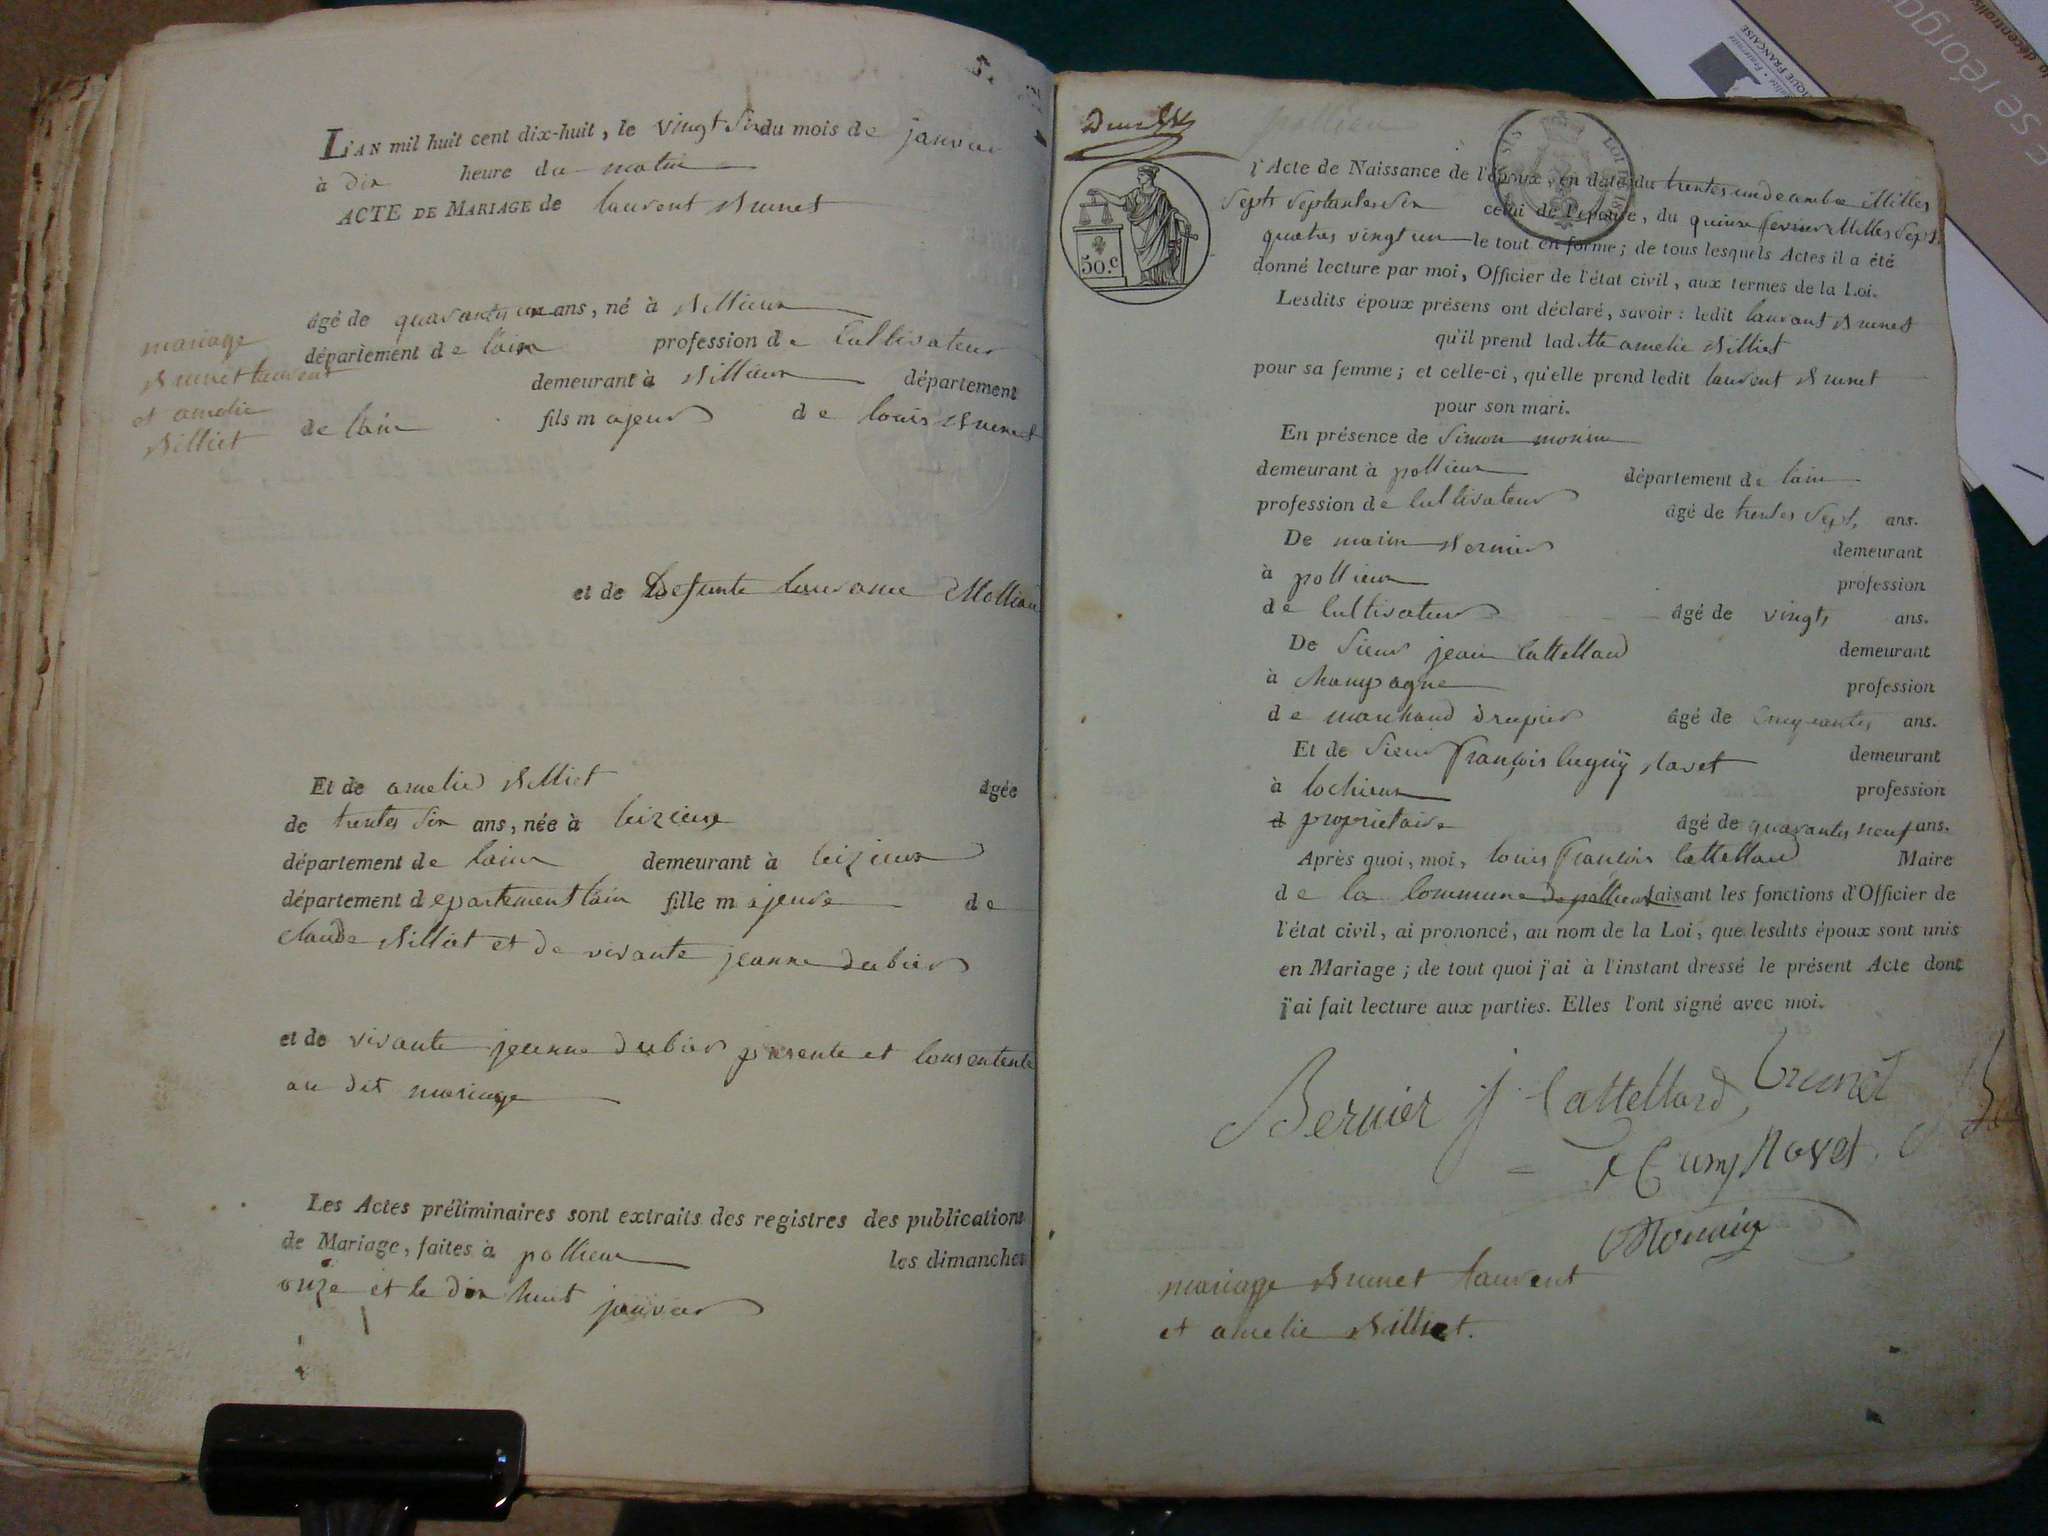 L'AN mil huit cent dix-huit, le vingt six du mois de janvier
à dix heure du matin
ACTE DE MARIAGE de laurent Brunet
mariage
Brunet laurent
et amelie
Billiet
âgé de quarante un ans, né à
département de lain profession de Cultivateur
demeurant à département
de lain fils majeur de louis Brunet
et de Defunte
Et de amelie Billiet âgée
de trentes six ans, née à ceizieux
département de lain demeurant à ceizieux
département departement lain fille majeure de
claude Billiet et de vivante jeanne dubier
et de vivante jeanne dubier presente et consentente
au dit mariage
Les Actes préliminaires sont extraits des registres des publications
de Mariage, faites à pollieu les dimanches
onze et le dix huit janvier
l'Acte de Naissance de l'époux, en date du trentes un decembre Milles
Septs Septantes Six celui de l'épouse, du quinze fevrier Milles Sept
quatres vingt un le tout en forme; de tous lesquels Actes il a été
donné lecture par moi, Officier de l'état civil, aux termes de la Loi.
50.c
Lesdits époux présens ont déclaré, savoir: ledit laurent Brunet
qu'il prend laditte amelie Billiet
pour sa femme; et celle-ci, qu'elle prend ledit laurent Brunet
pour son mari.
En présence de Simon monin
demeurant à pollieux département de lain
profession de Cultivateur âgé de trentes Sept, ans.
De marin Bernier demeurant
à pollieux profession
de Cultivateur âgé de vingts ans.
De Sieur jean Cattelland demeurant
à Champagne profession
de marchand drapier âgé de Cinquantes ans.
Et de Sieur françois Navet demeurant
à lochieux profession
d propriétaire âgé de quarantes neuf ans.
Après quoi, moi, louis françois Cattelland Maire
de la Commune de pollieux faisant les fonctions d'Officier de
l'état civil, ai prononcé, au nom de la Loi, que lesdits époux sont unis
en Mariage; de tout quoi j'ai à l'instant dressé le présent Acte dont
j'ai fait lecture aux parties. Elles l'ont signé avec moi.
Bernier j Cattelland Brunet
Navet
Monnin
mariage Brunet laurent
et amelie Billiet.